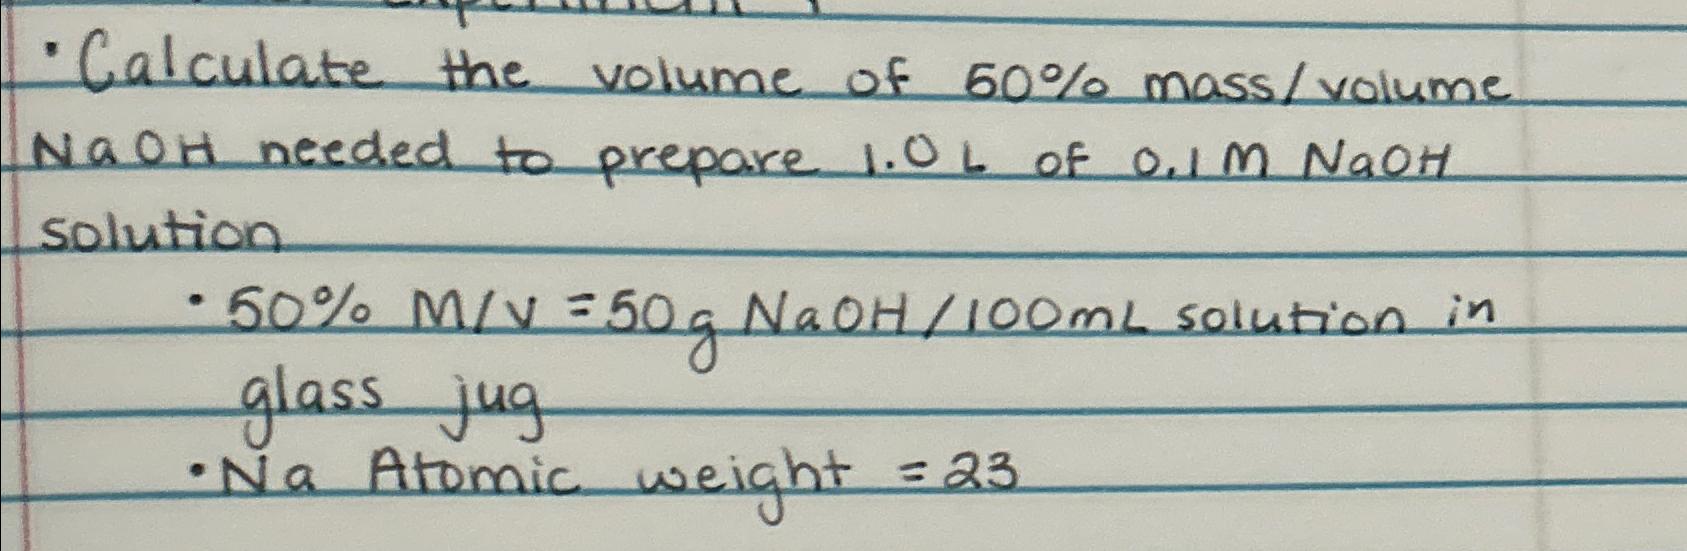 • Calculate the volume of 50% mass/volume
NaOH needed to prepare 1.0 L of 0.1 M NaOH
solution
• 50% M/V = 50g NaOH/100mL solution in
glass jug
• Na Atomic weight = 23